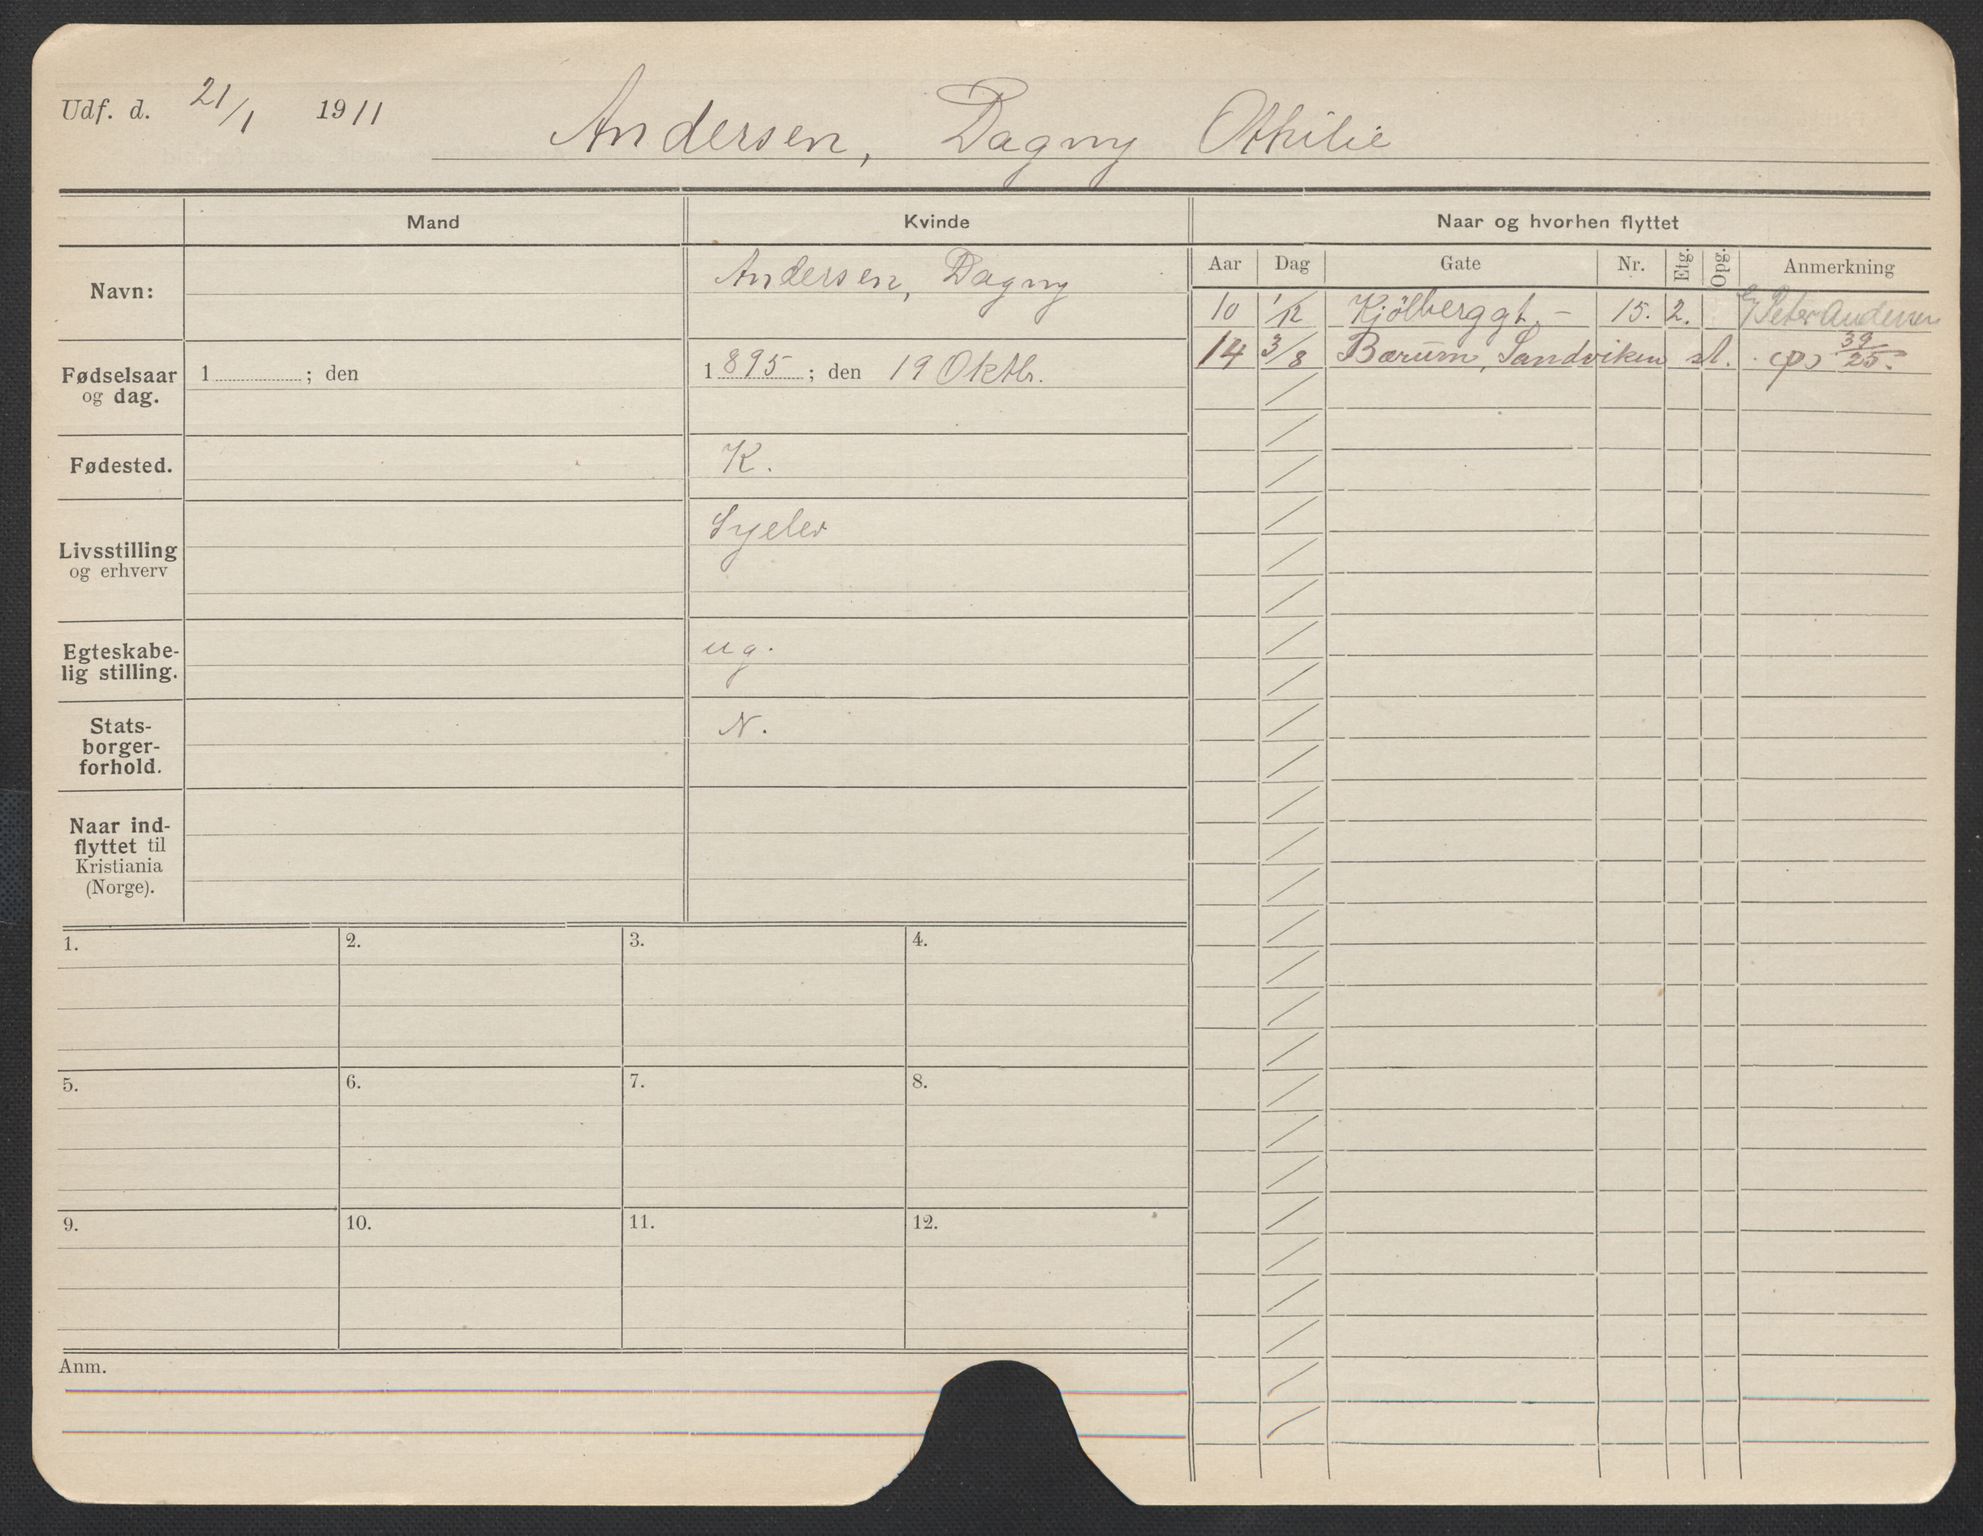 Udf. d. 21/1 1911
Andersen, Dagny Othilie
Mand Kvinde Naar og hvorhen flyttet
Aar Dag Gate Nr. Etg. Opg. Anmerkning
Navn: Andersen, Dagny
10 1/12 Kjölberggt. – 15. 2. Peter Andersen
14 3/8 Bærum, Sandviken st. (p) 39/25.
Fødselsaar
og dag.
1 ; den 1895 ; den 19 Oktbr.
Fødested. K.
Livsstilling
og erhverv
Syelev
Egteskabe-
lig stilling.
ug.
Stats-
borger-
forhold.
N.
Naar ind-
flyttet til
Kristiania
(Norge).
1. 2. 3. 4.
5. 6. 7. 8.
9. 10. 11. 12.
Anm.